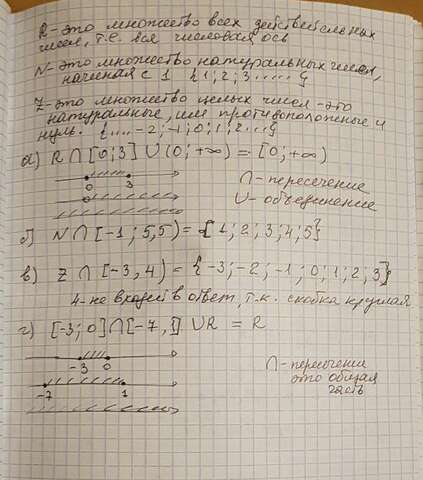 R - это множество всех действительных
чисел, т.е. вся числовая ось
N - это множество натуральных чисел,
начиная с 1 {1; 2; 3 ..... }
Z - это множество целых чисел - это
натуральные, им противоположные и
нуль. {.... -2; -1; 0; 1; 2...}
а) R ∩ [0; 3] ∪ (0; +∞) = [0; +∞)
0 3
∩ - пересечение
0
∪ - объединение
б) N ∩ [-1; 5,5) = {1; 2; 3; 4; 5}
в) Z ∩ [-3, 4) = {-3; -2; -1; 0; 1; 2; 3}
4 - не входит в ответ, т.к. скобка круглая
г) [-3; 0] ∩ [-7, 1] ∪ R = R
-3 0
∩ - пересечение
это общая
часть
-7 1